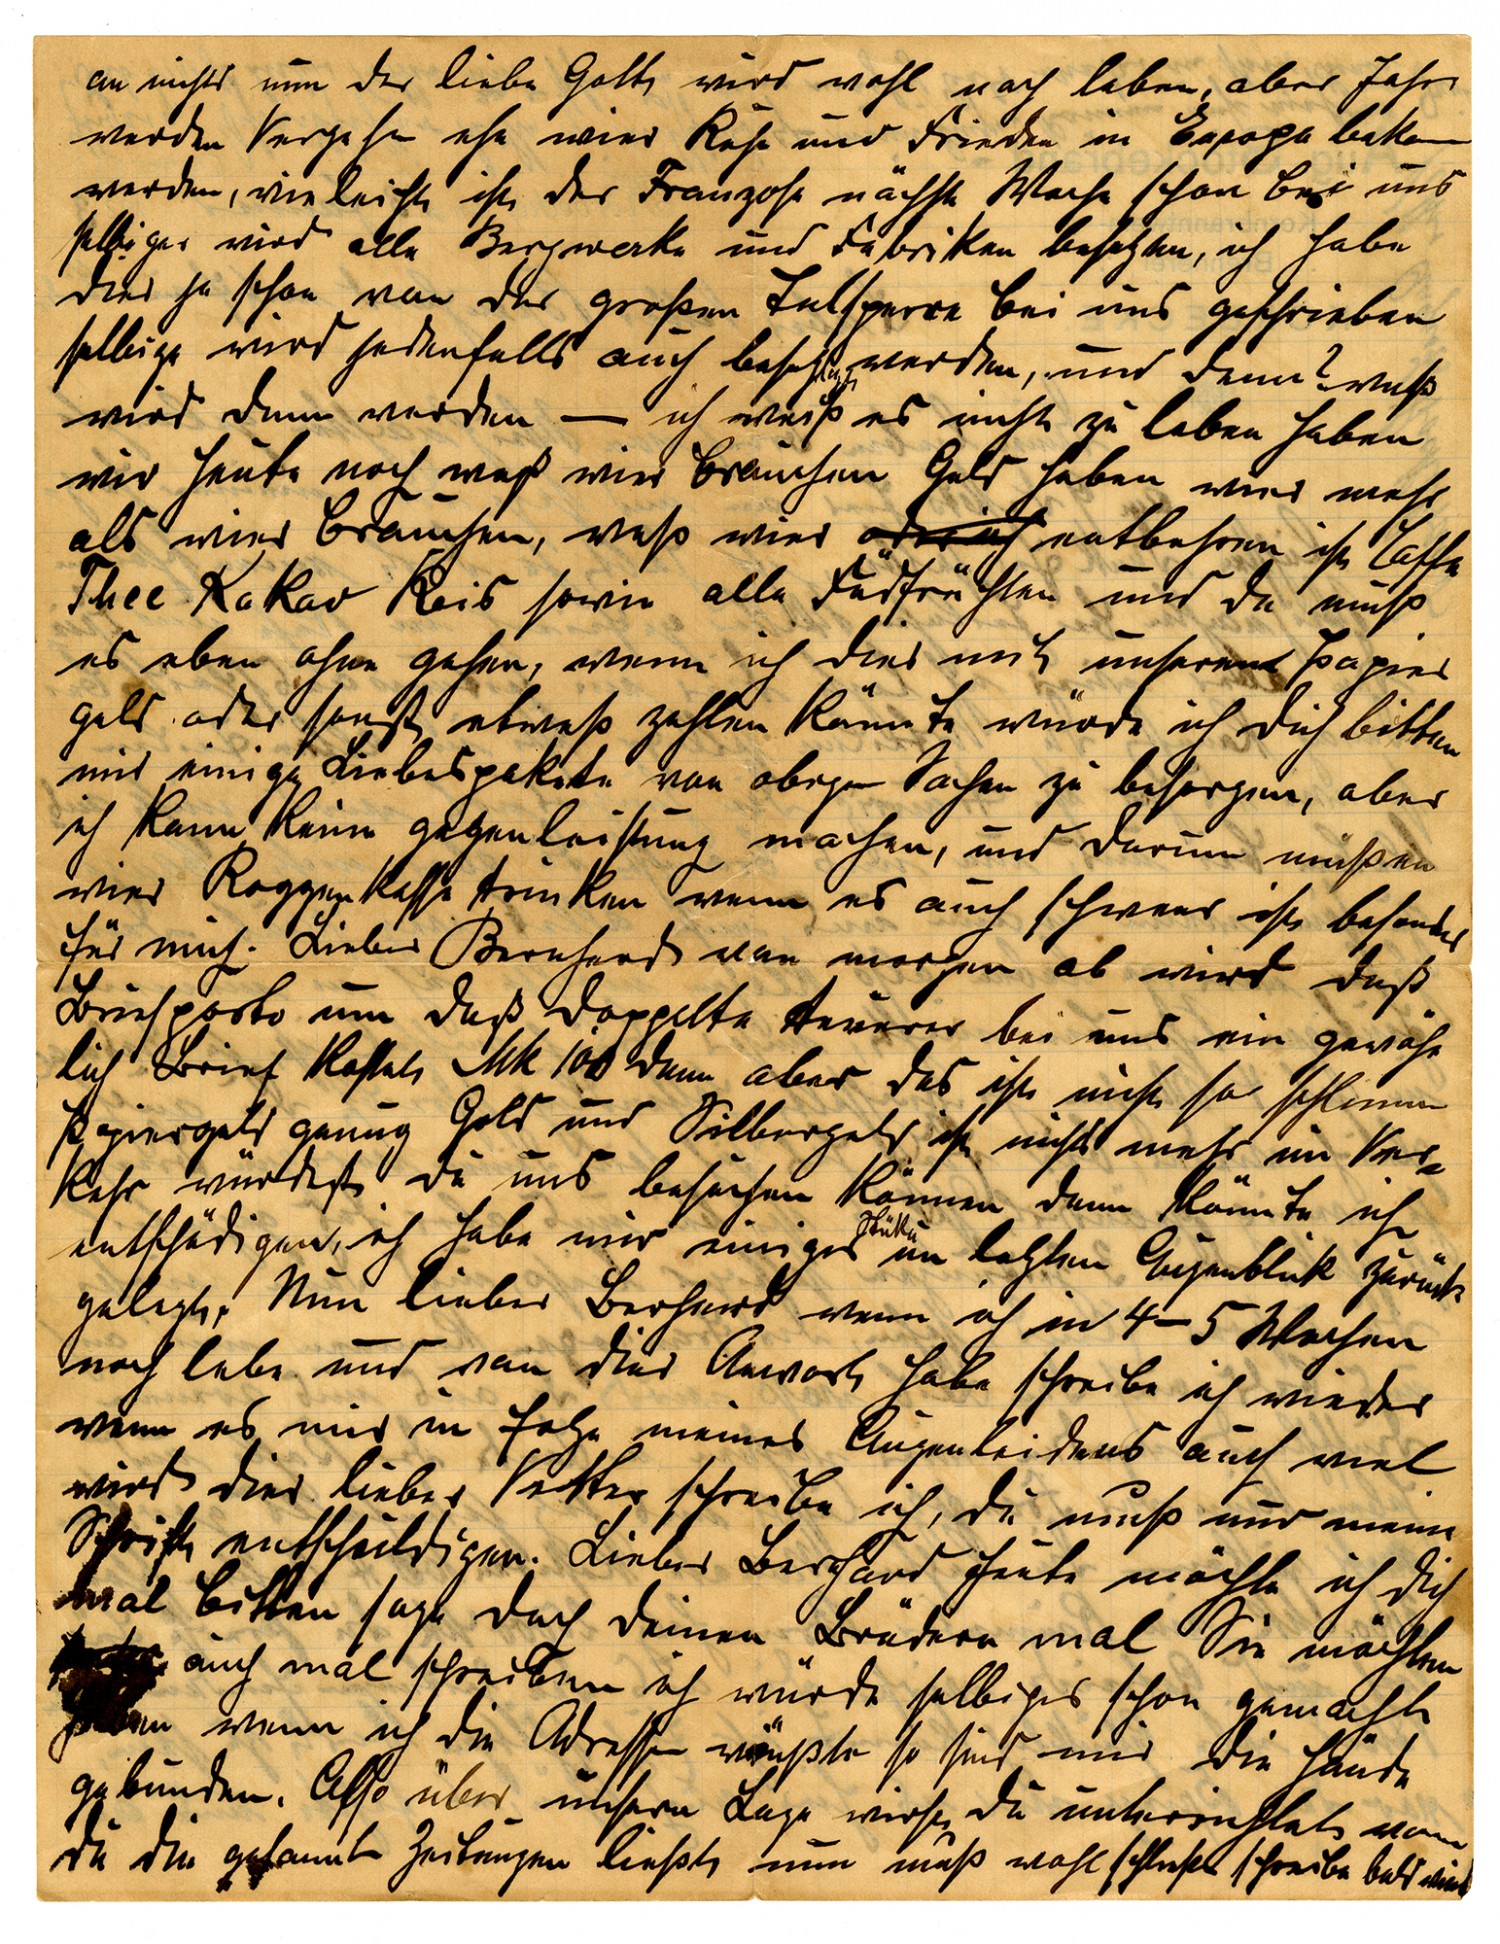 an nichts nun der liebe Gott wird wohl noch leben, aber Jahre
werden Vergehen ehe wier Ruhe und Frieden in Europa bekom
werden, vieleicht ist der Franzose nächste Woche schon bei uns
selbiger wird alle Bergwerke und Fabriken besetzten, ich habe
dier ja schon von der großen Talsperre bei uns geschrieben
selbige wird jedenfalls auch besetzt werden, und dann? waß
wird dann werden — ich weiß es nicht zu leben haben
wir heute noch waß wier brauchen Geld haben wier mehr
als wier brauchen, waß wier entbehren ist Caffe
Thee Kakao Reis sowie alle Südfrüchten und da muß
es eben ohne gehen, wenn ich dies mit unserem Papier
geld oder sonst etwaß zahlen könnte würde ich dich bitten
mir einige Liebespakete von obigen Sachen zu besorgen, aber
ich kann keine gegenleistung machen, und darum müßen
wier Roggenkaffe trinken wenn es auch schweer ist besonders
für mich. Lieber Bernhard von morgen ab wird daß
Briefporto um daß doppelte teuerer bei uns ein gewöhn
lich Brief kostet Mk 100 dann aber das ist nicht so schlimm
Papiergeld genug Gold und Silbergeld ist nicht mehr im Ver=
kehr würdest du uns besuchen können dann könnte ich
entschädigen, ich habe mir einiges Stüke im letzten Augenblick zurück
gelegt. Nun lieber Berhard wenn ich in 4–5 Wochen
noch lebe und von dier Anwort habe schreibe ich wieder
wenn es mir in folge meines Augenleidens auch viel
wird dier lieber Vetter schreibe ich, du muß nur meine
Schrift entschuldigen. Lieber Berhard heute möchte ich dich
mal bitten sage doch deinen Brüdern mal Sie möchten
auch mal schreiben ich würde selbiges schon gemacht
haben wenn ich die Adressen wüßte so sind mir die Hände
gebunden. Also über unsere Lage wirst du unterrichtet wenn
du die gesamte Zeitungen ließt nun muß wohl schließen schreibe bald wieder